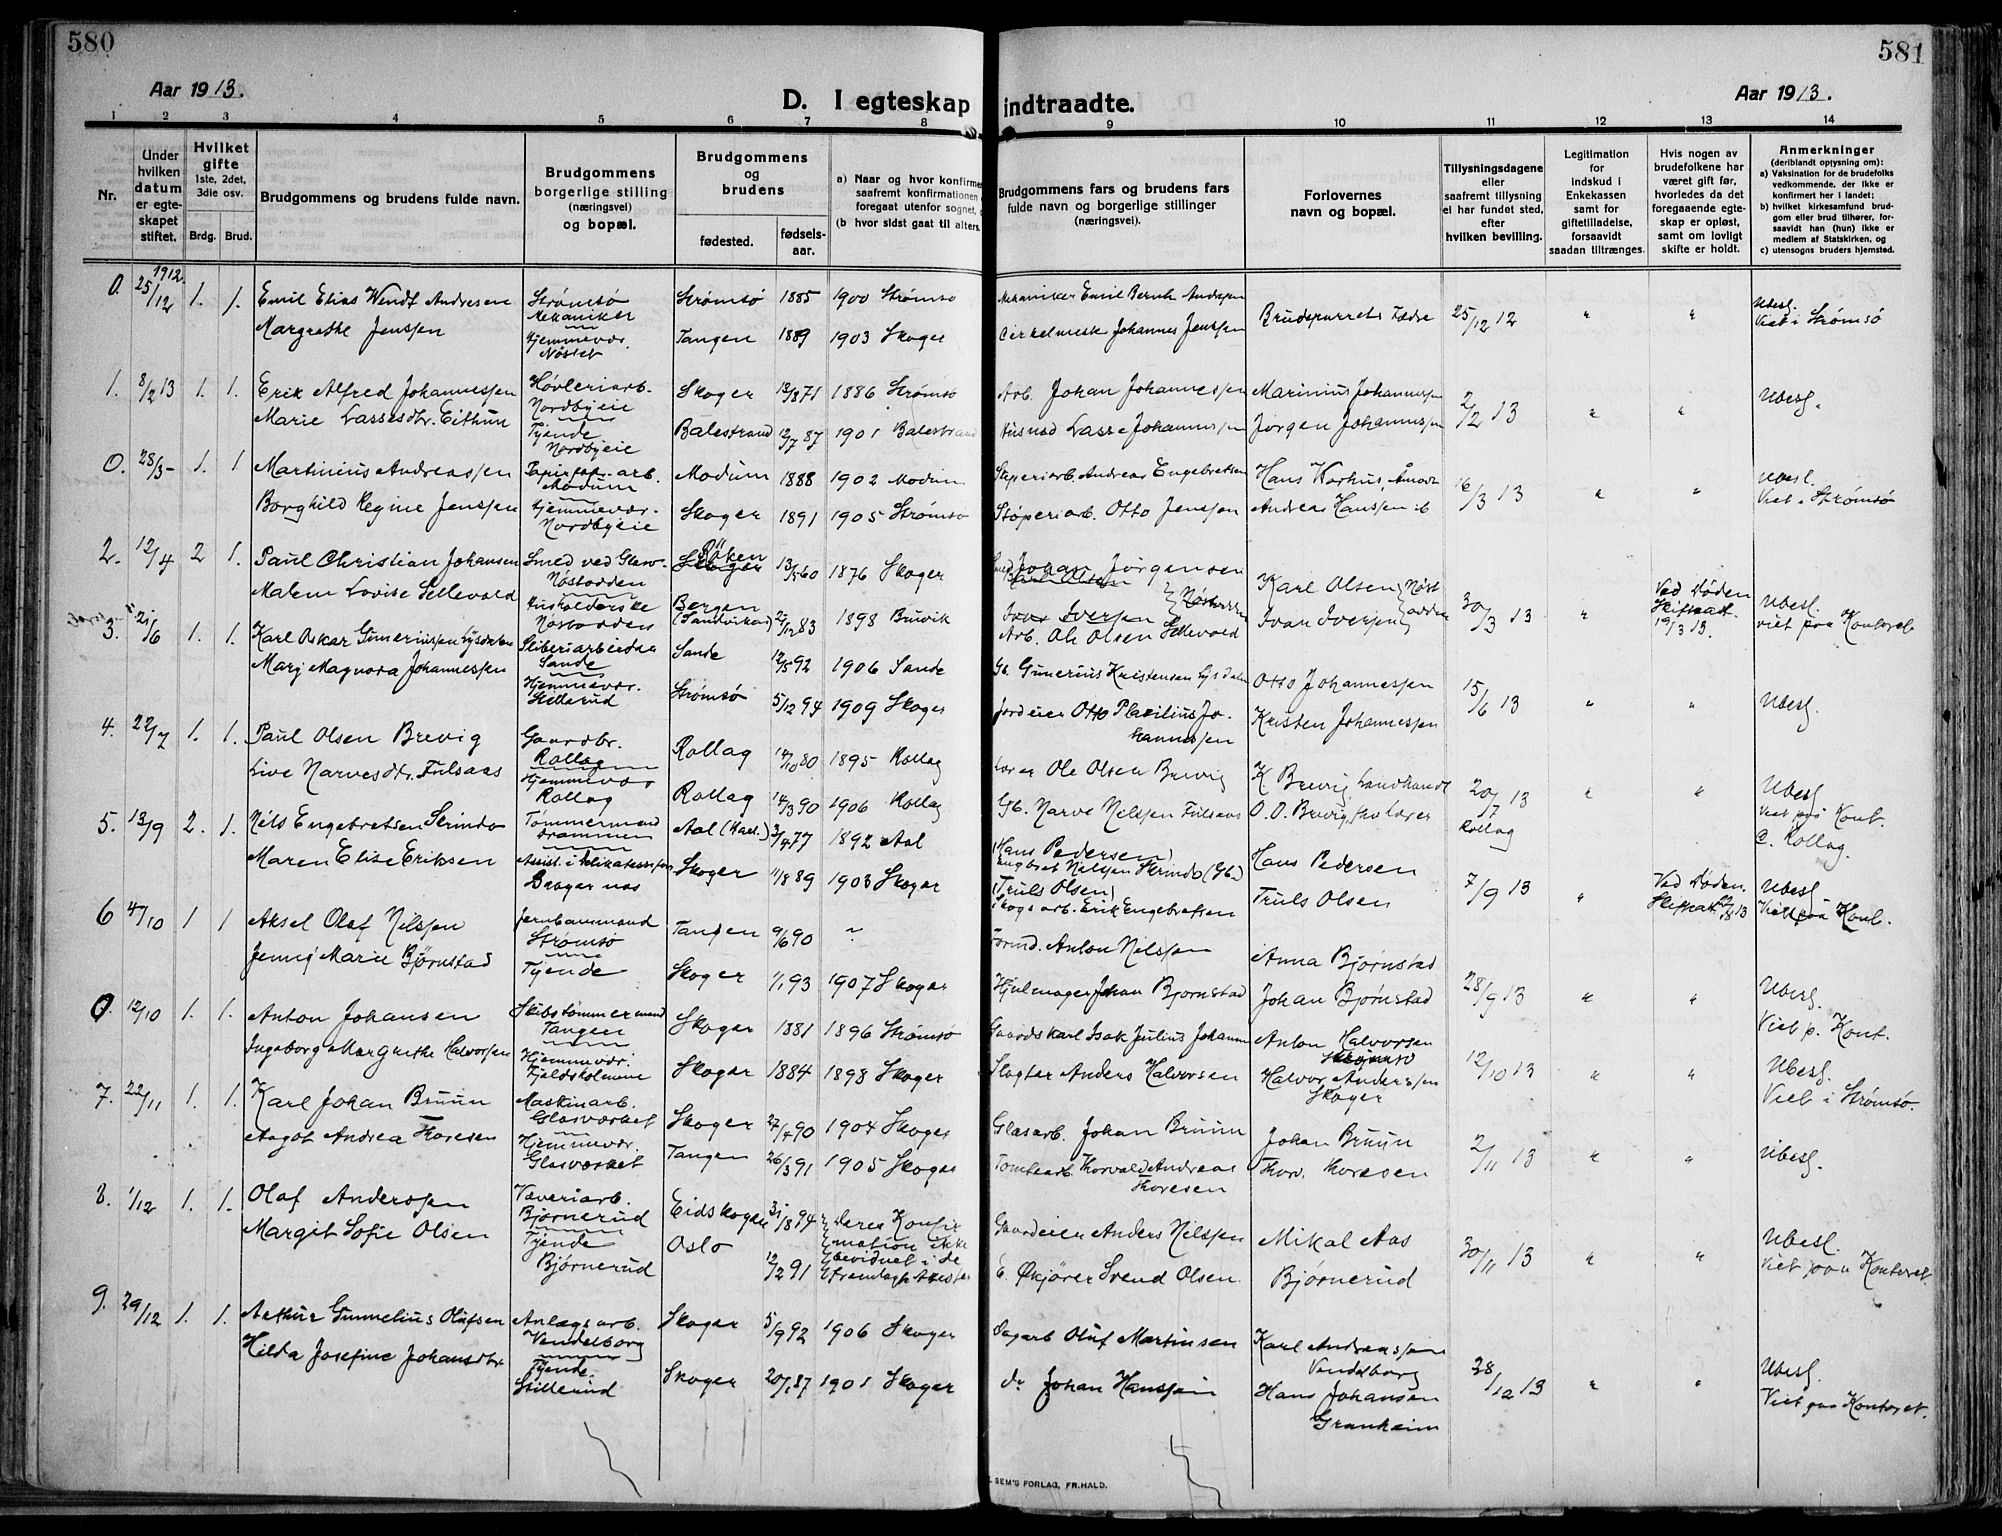 580
581
Aar 1913.
Aar 1913.
D. I egteskap indtraadte.
1 2 3 4 5 6 7 8 9 10 11 12 13 14
Nr.
Under hvilken datum er egte-skapet stiftet.
Hvilket gifte 1ste, 2det, 3die osv.
Brdg. Brud.
Brudgommens og brudens fulde navn.
Brudgommens borgerlige stilling (næringsvei) og bopæl.
Brudgommens og brudens
fødested. fødsels-aar.
a) Naar og hvor konfirme
saafremt konfirmationen
foregaat utenfor sognet,
(b hvor sidst gaat til alters.
Brudgommens fars og brudens fars
fulde navn og borgerlige stillinger
(næringsvei).
Forlovernes
navn og bopæl.
Tillysningsdagene
eller
saafremt tillysning
ei har fundet sted,
efter
hvilken bevilling.
Legitimation
for
indskud i
Enkekassen
samt for
giftetilladelse,
forsaavidt
saadan tiltrænges.
Hvis nogen av
brudefolkene har
været gift før,
hvorledes da det
foregaaende egte-
skap er opløst,
samt om lovligt
skifte er holdt.
Anmerkninger
(deriblandt oplysning om):
a) Vaksination for de brudefolks
vedkommende, der ikke er
konfirmert her i landet;
b) hvilket kirkesamfund brud-
gom eller brud tilhører, for-
saavidt han (hun) ikke er
medlem af Statskirken, og
c) utensogns bruders hjemsted.
0. 1912. 25/12 1. 1. Emil Elias Wendt Andresen Strømsø Mekaniker Strømsø 1885 1900 Strømsø Mekaniker Emil Bernh Andresen Brudeparrets Fædre 25/12 12 " " Ubesl. Viet i Strømsø
Margrethe Jenssen Hjemmevær. Nøsted Tangen 1889 1903 Skoger Cirkelmesk Johannes Jenssen
1. 8/2 13 1. 1. Erik Alfred Johannessen Høvleriarb. Nordbyeie Skoger 13/8 71 1886 Strømsø Arb. Johan Johannessen Marinius Johannessen 2/2 13 " " Ubesl.
Marie Lassesdtr. Eithun Tjende Nordbyeie Balestrand 12/7 87 1901 Balestrand Husmd Lasse Johannessen Jørgen Johannessen
0. 28/3 - 1. 1 Martinius Andreassen Papirfabr. arb. Modum Modum 1888 1902 Modum Andreas Engebretsen Hans Aamodt 16/3 13 " " Ubesl. Viet i Strømsø
Borghild Regine Jenssen Hjemmevær. Nordbyeie Skoger 1891 1905 Strømsø Støperiarb. Otto Jenssen Andreas Hanssen ib
2. 12/4 2 1. Paul Christian Johansen Smed ved Glasv. Nøstodden Röken 13/5 60 1876 Skoger Smed Johan Jørgensen Karl Olsen Nøstodden 30/3 13 " Ved Døden Skifteatt. 19/3 13. Ubesl. viet paa Kontoret
Malene Lovise Sellevold Husholderske Nøstodden Bergen (Sandviken) 22/12 83 1898 Bruvik Arb. Ole Olsen Sellevold Ivar Iversen
3. 21/6 1. 1. Karl Oskar Gunerius Lysdalen Sliberiarbeider Sande Sande 12/5 92 1906 Sande Gb. Gunerius Kristensen Lysdalen Otto Johannessen 15/6 13 " " Ubesl.
Mary Magnora Johannessen Hjemmevær. Stillerud Strømsø 5/12 94 1909 Skoger Jordeier Otto Plaxilius Johannessen Kristen Johannessen
4. 22/7 1. 1. Paul Olsen Brevig Gaardbr. Rollag Rollag 14/10 80 1895 Rollag Ole Olsen Brevig K Brevig Landhandl 20/7 13 Rollag " " Ubesl. Viet på Kont. C. Rollag.
Live Narvesdtr. Fulsaas Hjemmevær Rollag Rollag 14/3 90 1906 Rollag Gb. Narve Nilssen Fulsaas O. O. Brevig
5. 13/9 2. 1. Nils Engebretsen Skrindo Tømmermand Drammen Aal (Hall.) 3/4 77 1892 Aal (Hans Pedersen) Engbret Nielsen Skrindo (Gb.) Hans Pedersen 7/9 13 " Ved Døden. Skifteatt. Ubesl. Viet paa Kont.
Maren Elise Eriksen Assist. i Delikatessefor. Dragernæs Skoger 11/8 89 1903 Skoger (Truls Olsen) Skogsarb. Erik Engebretsen Truls Olsen
6 4/10 1 1 Aksel Olaf Nilssen Jernbanemand Strømsø Tangen 9/6 90 ~ Formd. Anton Nilssen Anna Bjørnstad 28/9 13 " " Ubesl. Viet p. Kont.
Jenny Marie Bjørnstad Tjende Skoger 1/1 93 1907 Skoger Hjulmager Johan Bjørnstad Johan Bjørnstad
0. 12/10 1. 1. Anton Johansen Skibstømmermand Tangen Skoger 1881 1896 Strømsø Gaardskarl Isak Julius Johansen Anton Halvorsen Strømsø 12/10 13 " " Ubesl. Viet i Strømsø.
Ingeborg Margrethe Halvorsen Hjemmevær. Fjeldskolmene Skoger 1884 1898 Skoger Slagter Anders Halvorsen Halvor Anderssen Skoger
7. 22/11 1. 1. Karl Johan Bruun Maskinarb. Glasværket Skoger 27/4 90 1904 Skoger Glasarb. Johan Bruun Johan Bruun 2/11 13 " " Ubesl.
Aagot Andrea Thoresen Hjemmevær. Glasværket Tangen 26/3 91 1905 Skoger Tomtearb. Thorvald Andreas Thoresen Thorv. Thoresen
8. 1/12 1. 1. Olaf Anderssen Væveriarb. Bjørnerud Eidskogen 31/8 94 Deres Konfirmation ikke bevidnet i de fremlagte Attester Gaardeier Anders Nilssen Mikal Aas 30/11 13 " " Ubesl. Viet paa Kontoret
Margit Sofie Olsen Tjende Bjørnerud Oslo 12/2 91 Svend Olsen Bjørnerud
9. 29/12 1. 1. Arthur Gunnelius Olufsen Anlægsarb. Vendelborg Skoger 5/9 92 1906 Skoger Dagarb Oluf Martinsen Karl Andreassen Vendelborg 28/12 13 " " Ubesl. Viet paa Kontoret.
Hilda Josefine Johansdtr Tjende. Stillerud Skoger 20/1 87 1901 Skoger do Johan Hanssen Hans Johansen Granheim
SEM'S FORLAG, FR.HALD.